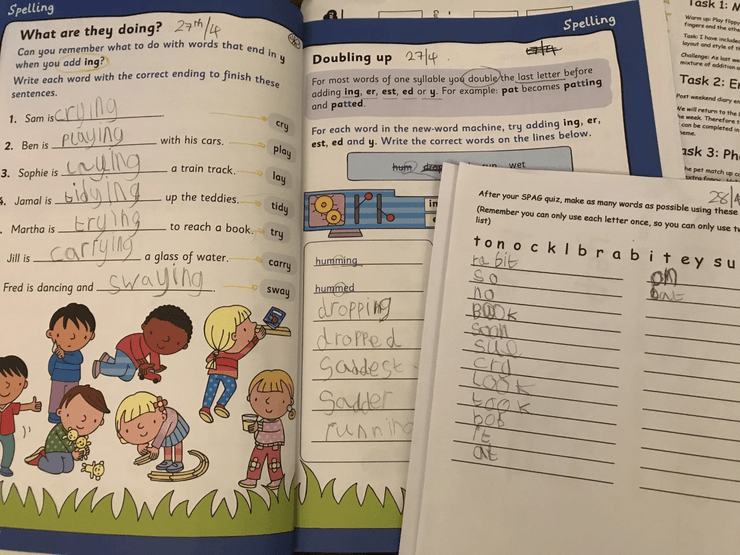 Spelling
What are they doing? 27th/4
Can you remember what to do with words that end in y
when you add ing?
Write each word with the correct ending to finish these
sentences.
1. Sam is crying
cry
2. Ben is playing with his cars.
play
3. Sophie is laying a train track.
lay
4. Jamal is tidying up the teddies.
tidy
Martha is trying to reach a book.
try
Jill is carrying a glass of water.
carry
Fred is dancing and swaying.
sway
Spelling
Doubling up 27/4
For most words of one syllable you double the last letter before
adding ing, er, est, ed or y. For example: pat becomes patting
and patted.
For each word in the new-word machine, try adding ing, er,
est, ed and y. Write the correct words on the lines below.
hum drop wet
in
humming
hummed
dropping
dropped
saddest
sadder
running
Task 1:
Warm up: Play flippy
fingers and the
Task: I have
layout and style of
Challenge: As last
mixture of addition
Task 2:
Post weekend diary
We will return to the
the week. Therefore
can be completed in
Task 3:
the pet match up
28/4
After your SPAG quiz, make as many words as possible using these
(Remember you can only use each letter once, so you can only use
list)
t o n o c k l b r a b i t e y s u
ra bit
on
so
bat
no
BOOK
soon
cry
look
took
bob
it
at